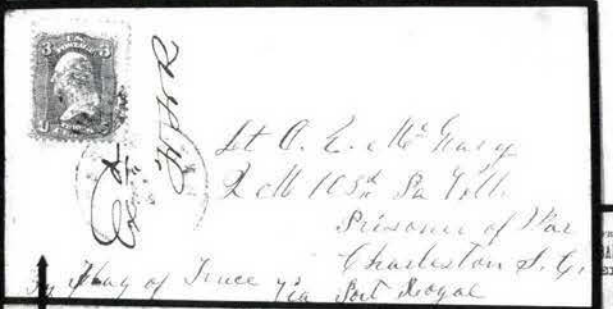 U.S.
POSTAGE
3 3
Ex d
H H R
Lt O. L. Mc
Q M 103d Pa Volls
Prisoner of War
Charleston S. C.
By Flag of Truce via Port Royal